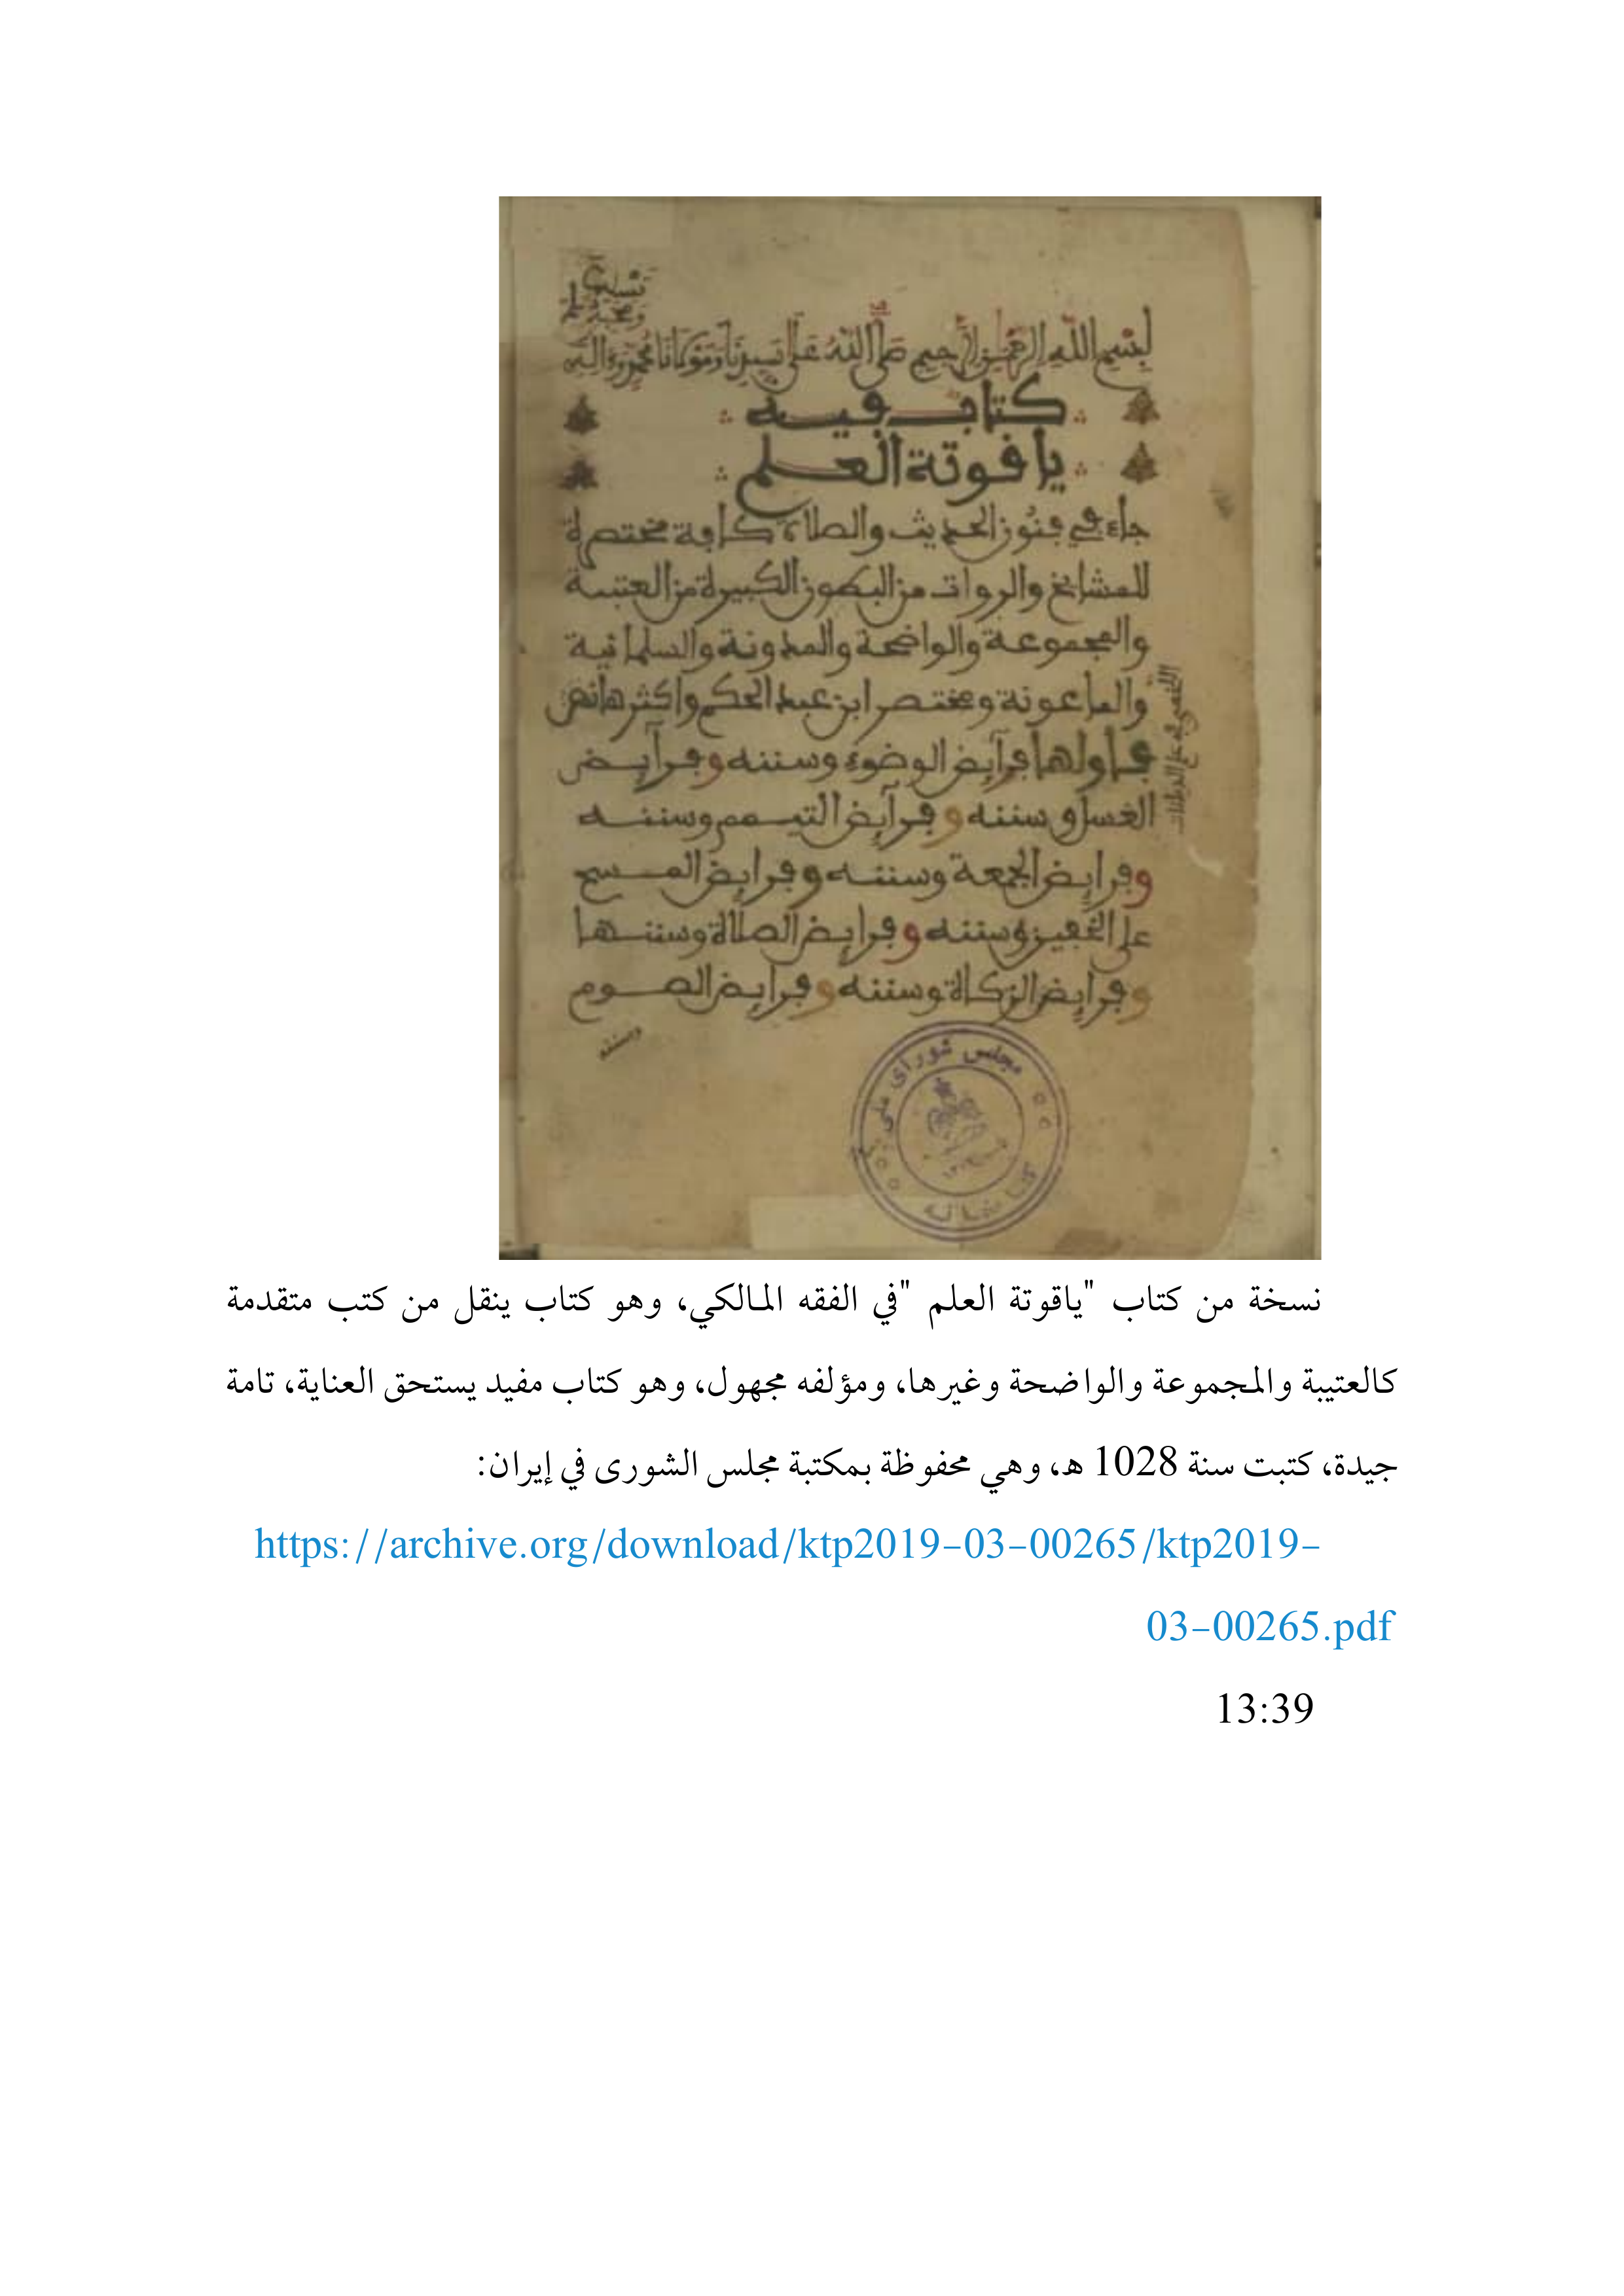 بسم الله الرحمن الرحيم صلى الله على سيدنا ومولانا محمد وءاله
كتاب فيه
ياقوتة العلم
جاء في فنون الحديث والصلاة كافية مختصرة
للمشايخ والروات من البطون الكبيرة من العتبية
والمجموعة والواضحة والمدونة والسلمانية
والماعونة ومختصر ابن عبد الحكم واكثرها نص
فاولها فرآيض الوضوء وسننه وفرآيض
الغسل وسننه وفرآيض التيمم وسننه
وفرايض الجمعة وسننه وفرايض المسح
على الخفين وسننه وفرايض الصلاة وسننها
وفرايض الزكاة وسننه وفرايض الصوم
وسننه
مجلس شورای ملی
كتابخانه
نسخة من كتاب "ياقوتة العلم "في الفقه المالكي، وهو كتاب ينقل من كتب متقدمة
كالعتيبة والمجموعة والواضحة وغيرها، ومؤلفه مجهول، وهو كتاب مفيد يستحق العناية، تامة
جيدة، كتبت سنة 1028 هـ، وهي محفوظة بمكتبة مجلس الشورى في إيران:
https://archive.org/download/ktp2019-03-00265/ktp2019-
03-00265.pdf
13:39